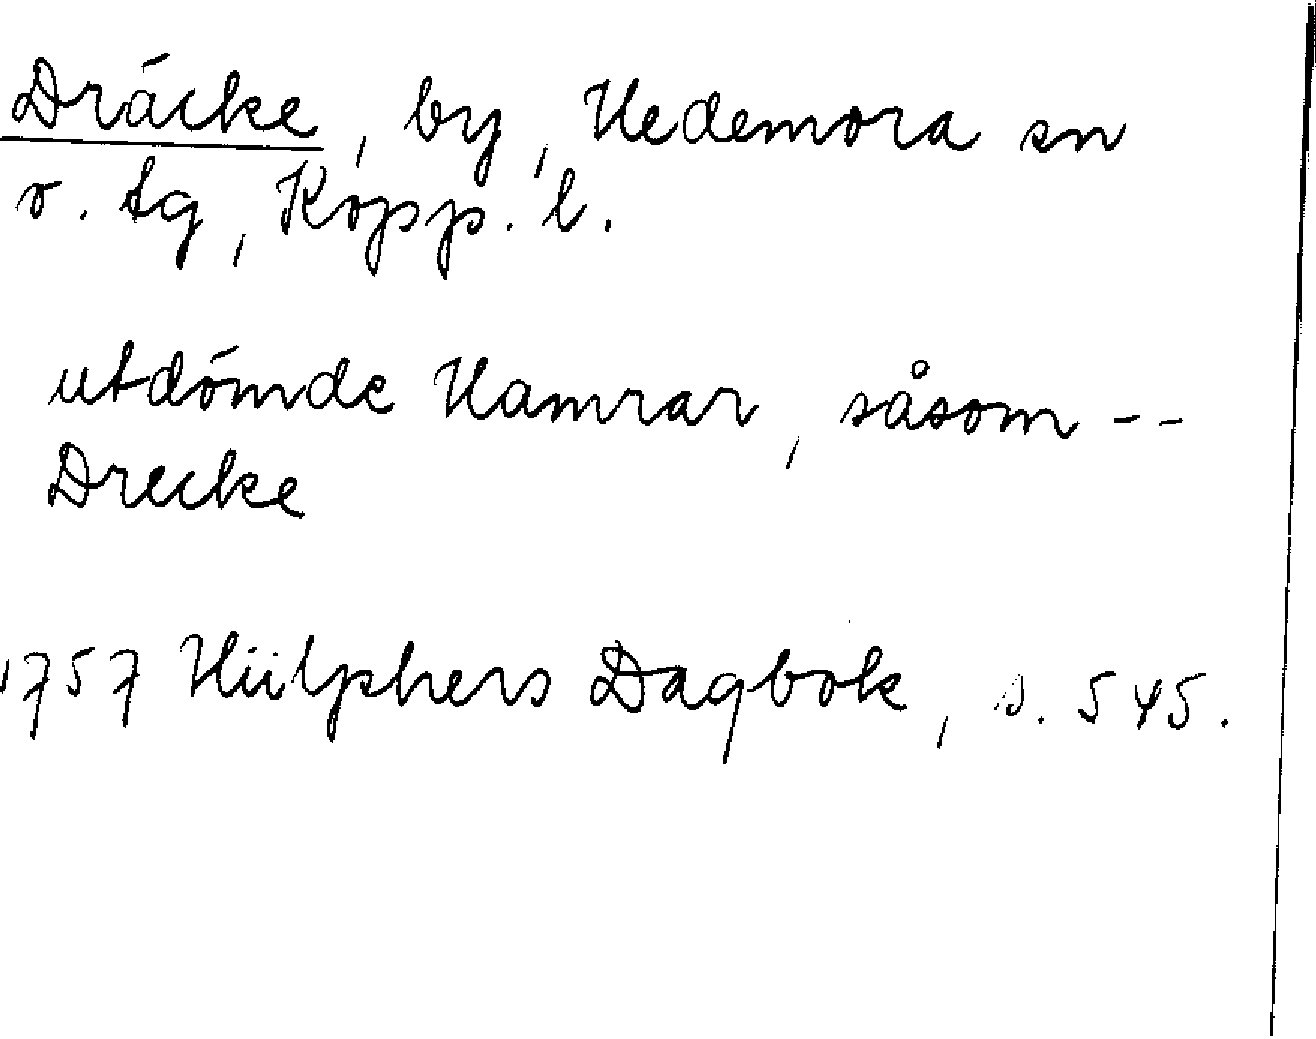 Dräcke, by, Hedemora sn
o. tg, Kopp. l.
utdömde Hamrar, såsom --
Drecke
1757 Hülphers Dagbok, s. 545.